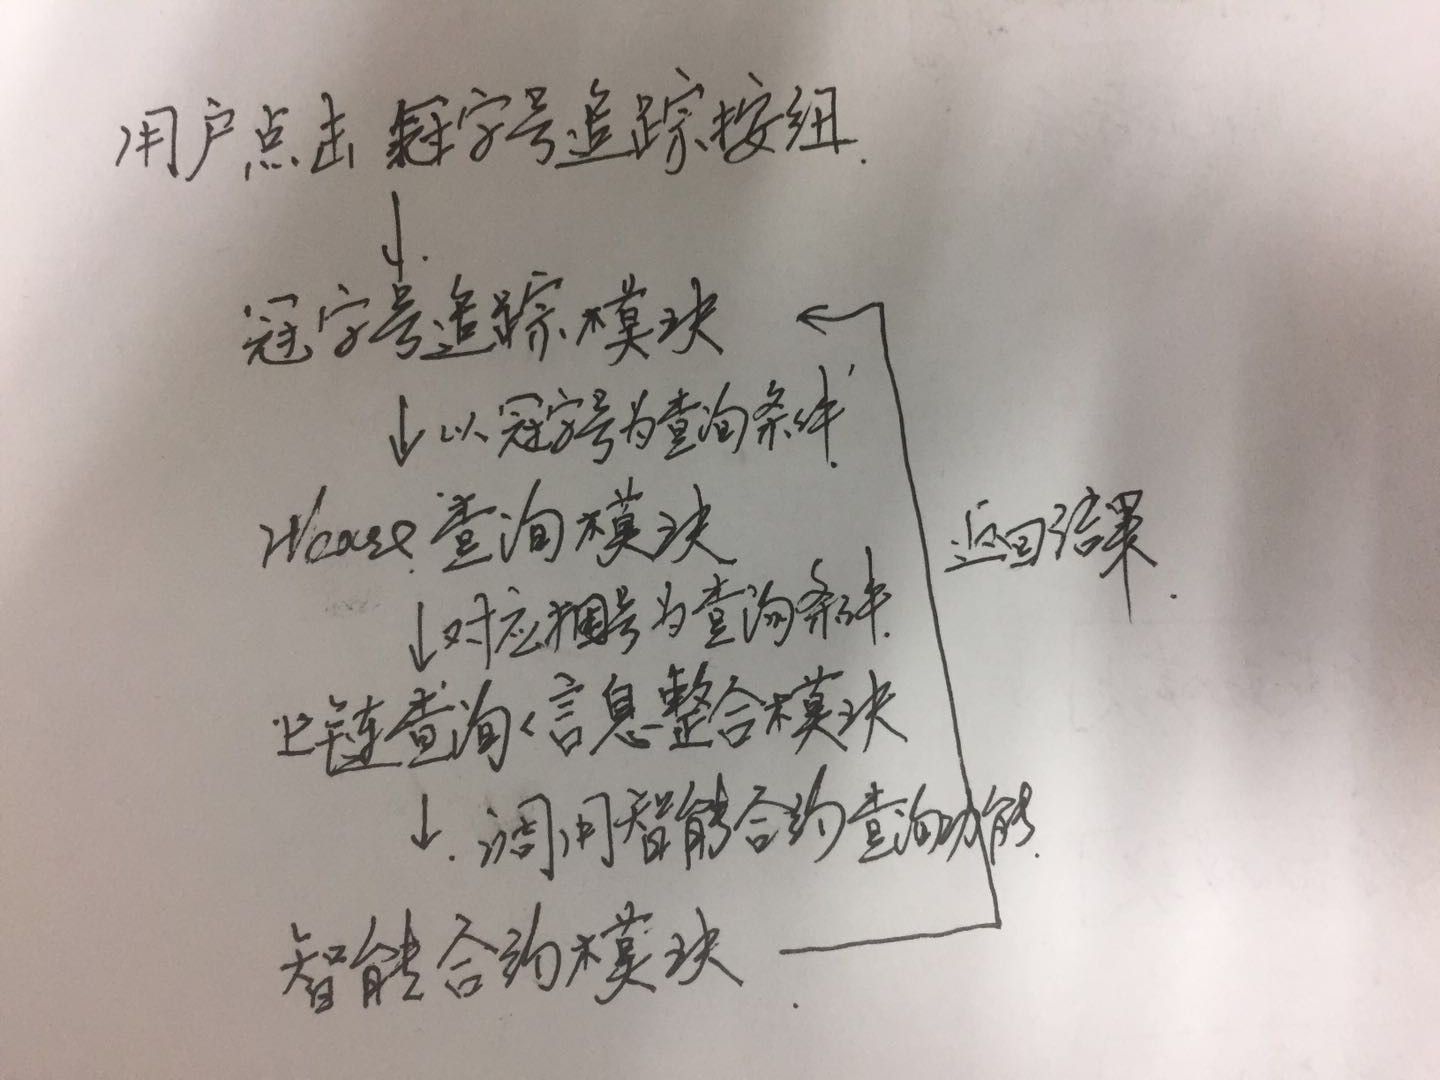 用户点击冠字号追踪按纽.
冠字号追踪模块
以冠字号为查询条件.
查询模块
返回结果.
对应捆号为查询条件.
上链查询信息整合模块
调用智能合约查询功能.
智能合约模块